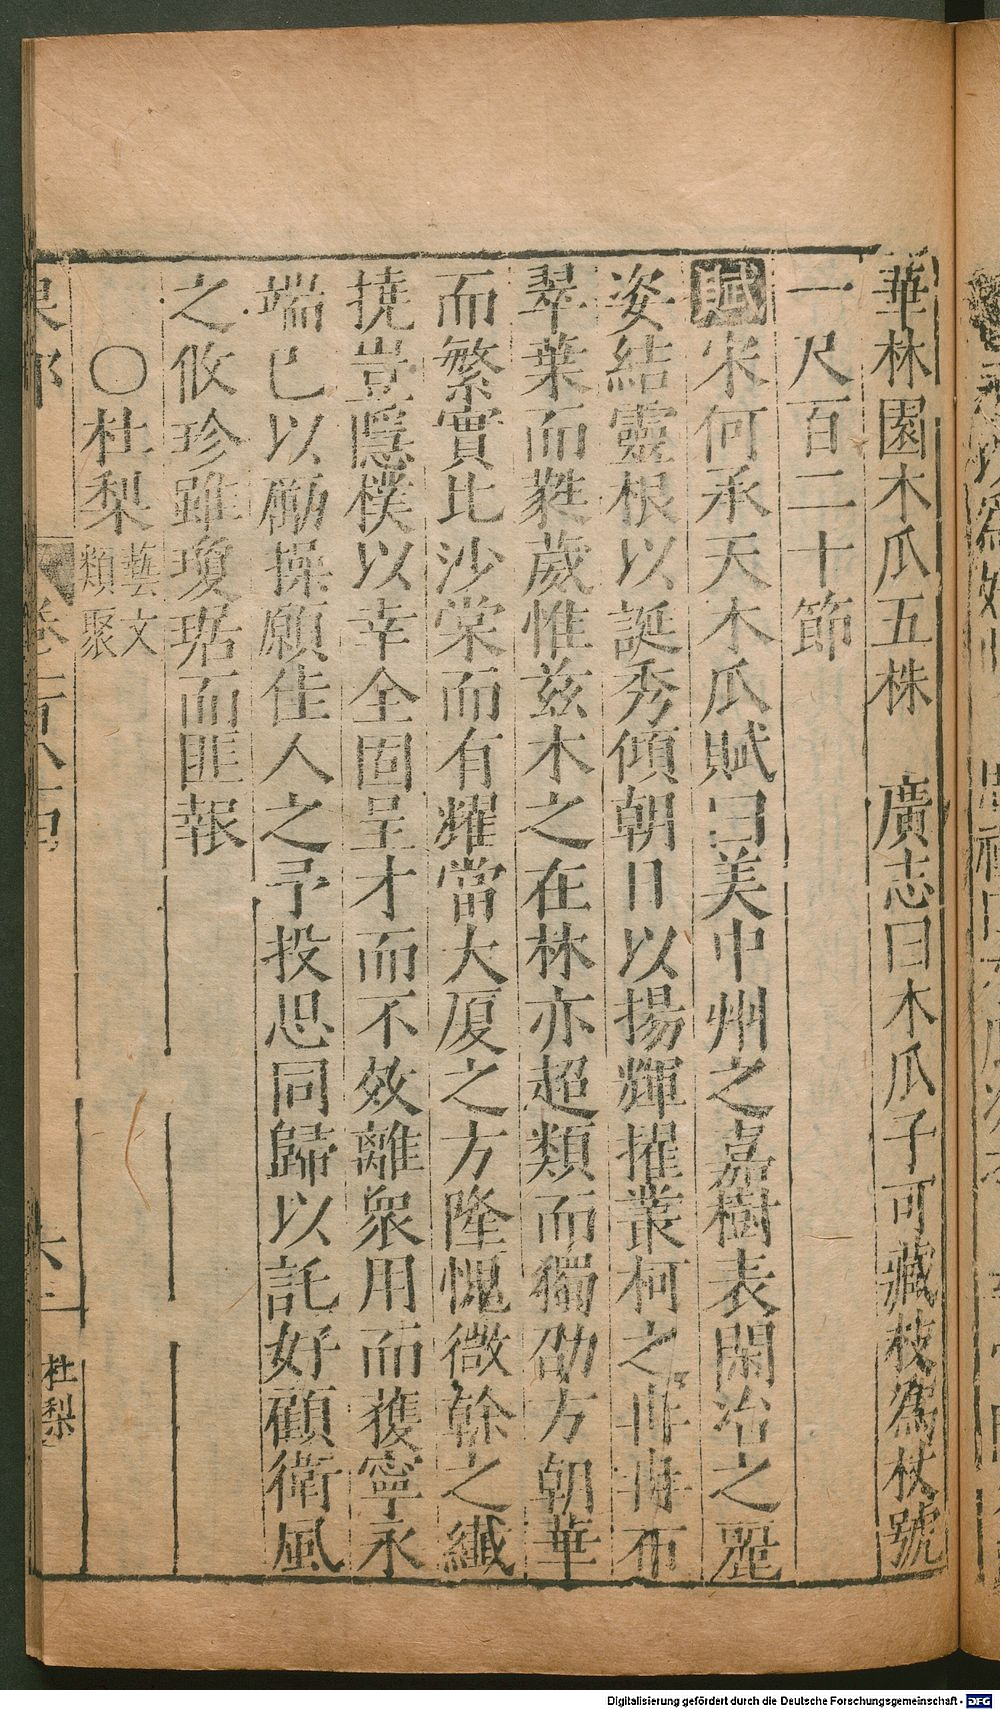 華林園木瓜五株　廣志曰木瓜子可藏枝爲杖號
一尺百二十節
賦宋何承天木瓜賦曰美中州之嘉樹表閑冶之麗
姿結靈根以誕秀傾朝日以揚輝擢叢柯之冉冉布
翠葉而蕤葳惟兹木之在林亦超類而獨劭方朝華
而繁實比沙棠而有耀當大厦之方隆愧微幹之纖
撓豈隱樸以幸全固呈才而不效離衆用而獲寧永
端己以勵操願佳人之予投思同歸以託好顧衛風
之攸珍雖瓊琚而匪報
○杜棃藝文類聚
六
杜棃
Digitalisierung gefördert durch die Deutsche Forschungsgemeinschaft - DFG